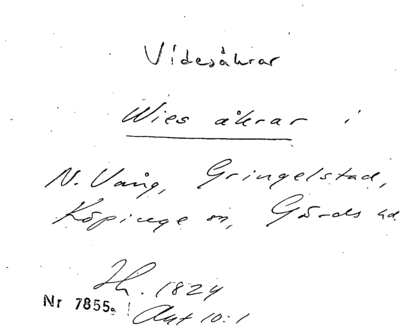 Videsåkrar
Wies åkrar i
N. Vång, Gringelstad,
Köpinge sn, Gärds hd
Sk. 1824
Nr 7855. Akt 10:1